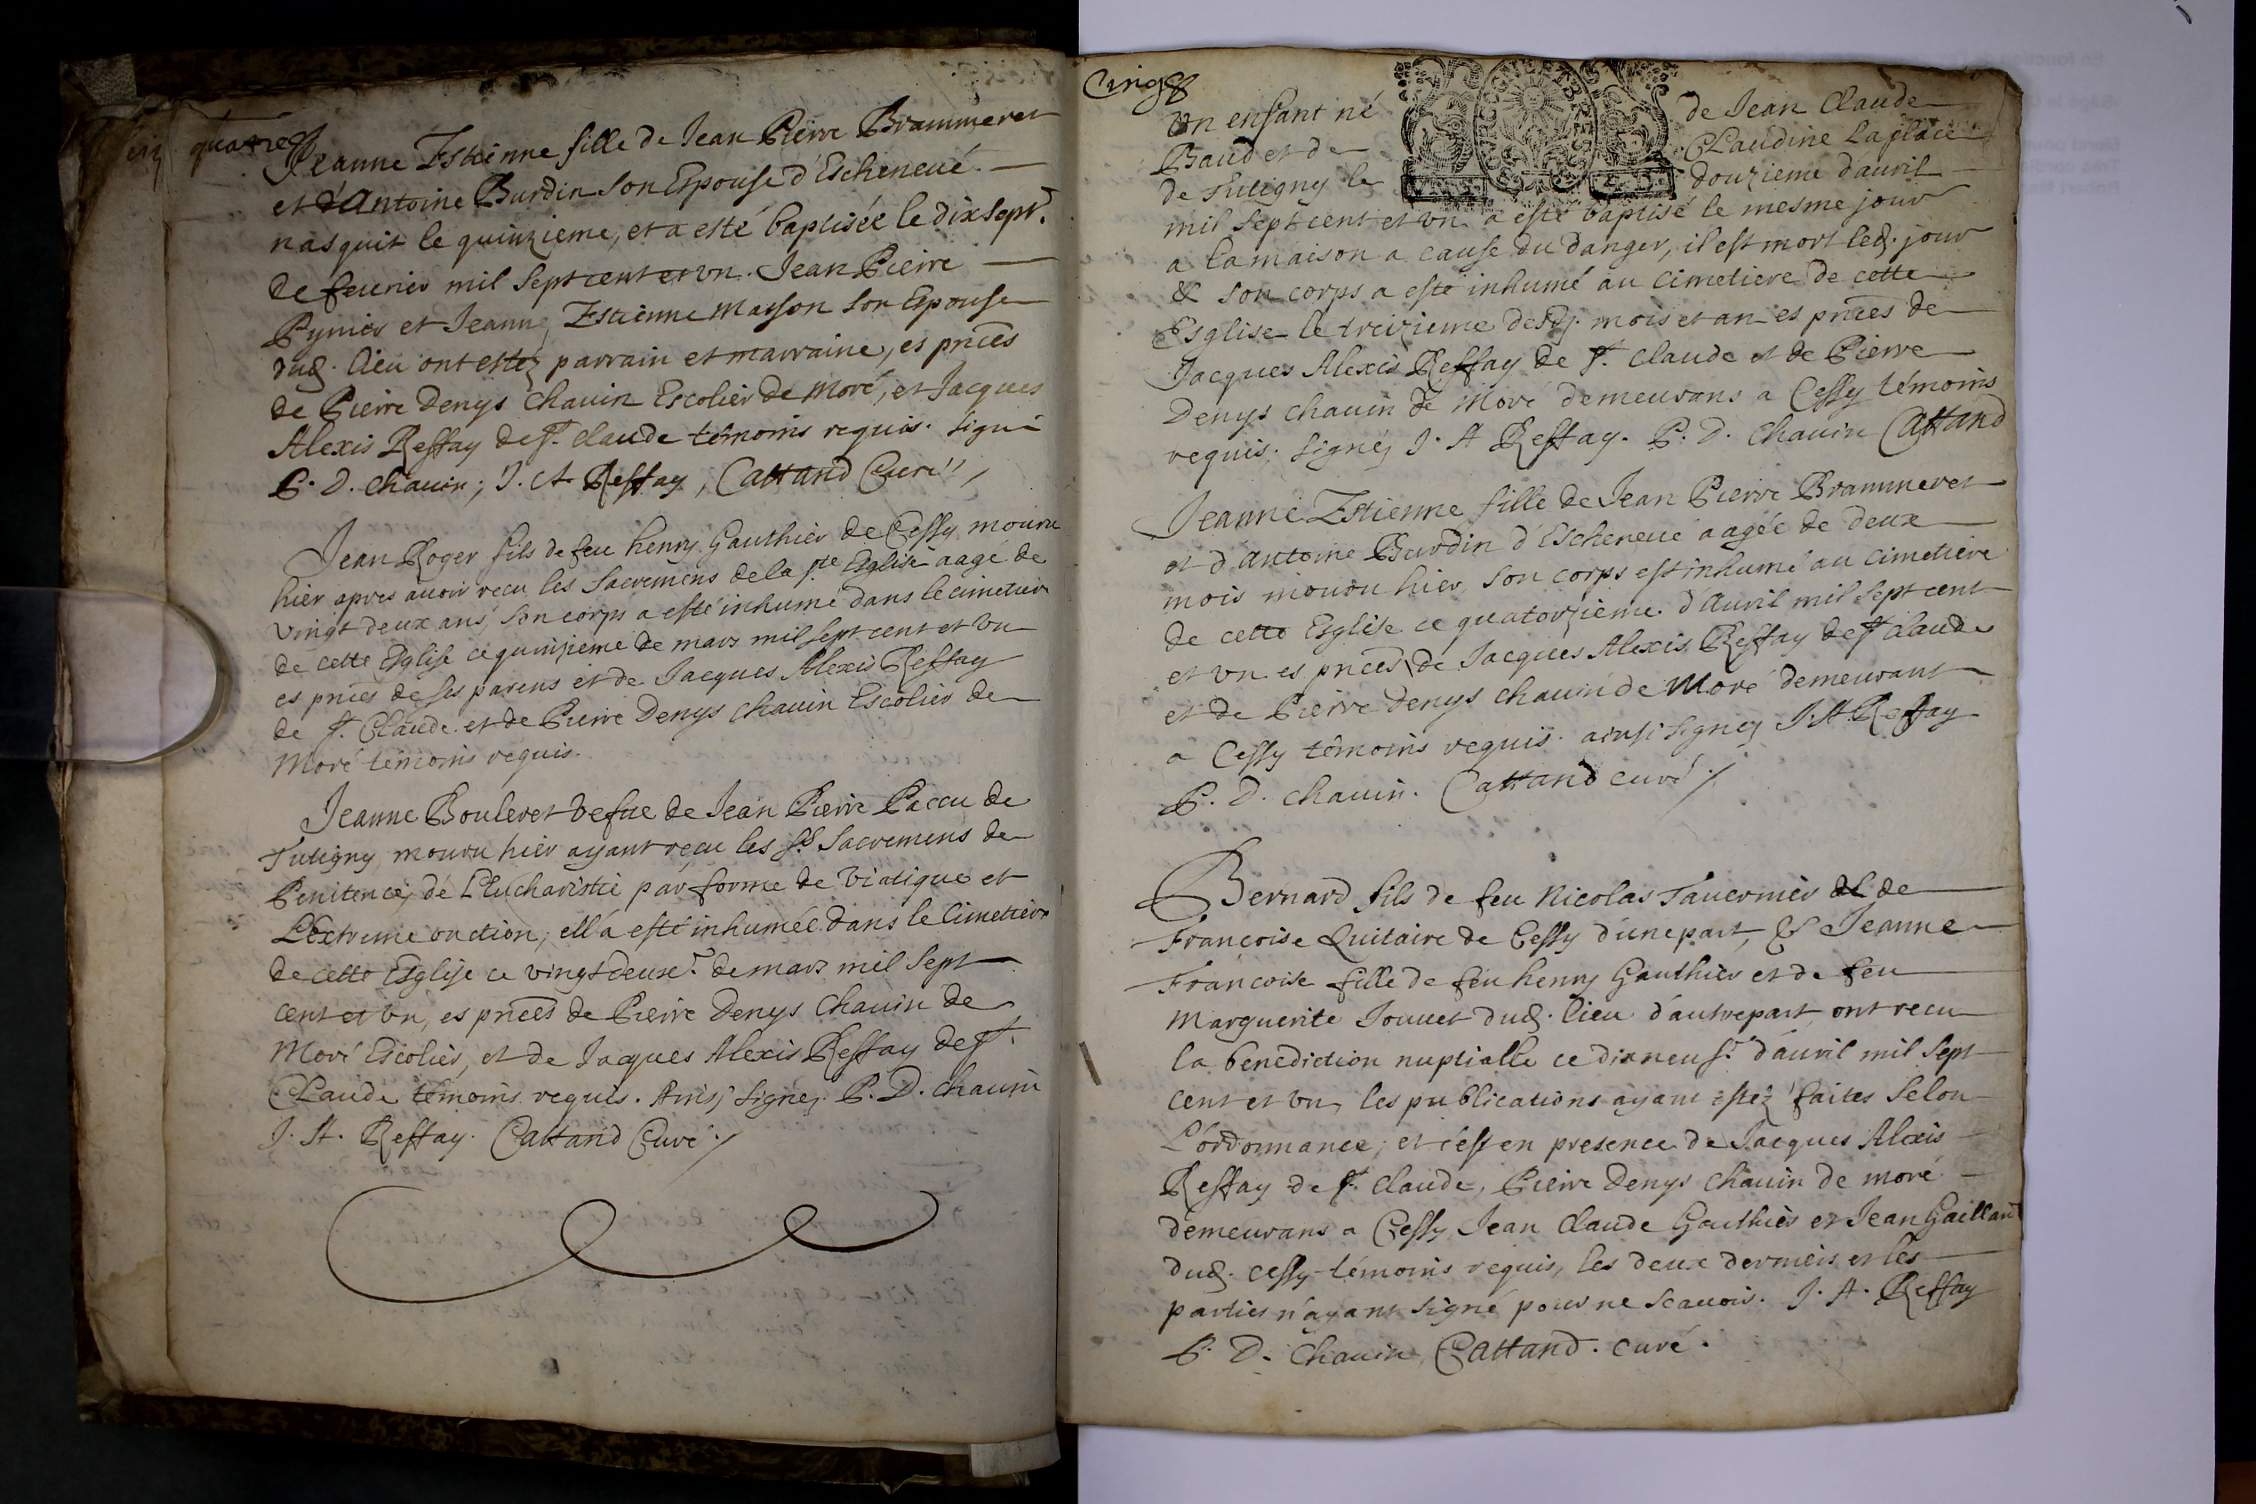 quatre
Jeanne Estienne fille de Jean Pierre Brammeret
et d'Antoine Burdin son Espouse d'Escheneué
nasquit le quinzieme, et a esté baptisée le dix sept.e
de feurier mil sept cent et vn. Jean Pierre
Pynier et Jeanne Estienne Masson son Espouse
dud. lieu ont estez parrain et marraine, es pnces
de Pierre Denys Chauin Escolier de Moré, et Jacques
Alexis Reffay de St. Claude témoins requis. signé
P. D. Chauin; J. A. Reffay, Cattand Curé
Jean Roger fils de feu henry Gauthier de Cessy mouru
hier apres auoir reçu les Sacremens de la ste Eglise aagé de
vingt deux ans, son corps a esté inhumé dans le cimetiere
de cette Esglise ce quinzieme de mars mil sept cent et vn
es pnces de ses parens et de Jacques Alexis Reffay
de St. Claude et de Pierre Denys Chauin Escolier de
Moré témoins requis.
Jeanne Bouleret vefue de Jean Pierre Paccu de
Tutigny mouru hier ayant reçu les Sts Sacremens de
Penitence, de L'Eucharistie par forme de Viatique et
L'Extreme onction, ell'a esté inhumée dans le Cimetiere
de cette Esglise ce vingt deuxe. de mars mil sept
cent et vn, es pnces de Pierre Denys Chauin de
Moré Escolier, et de Jacques Alexis Reffay de St.
Claude témoins requis. Ainsj signez P. D. Chauin
J. A. Reffay. Cattand Curé
Cinq
Vn enfant né de Jean Claude
Baud et de Claudine Laplace
de Tutigny le douzieme d'auril
mil sept cent et vn a esté baptisé le mesme jour
a la maison a cause du danger, il est mort led. jour
& son corps a esté inhumé au Cimetiere de cette
Esglise le treizieme desd. mois et an es pnces de
Jacques Alexis Reffay de St. Claude et de Pierre
Denys Chauin de Moré demeurans a Cessy témoins
requis. signéz J. A Reffay. P. D. Chauin Cattand
Jeanne Estienne fille de Jean Pierre Brammeret
et d'Antoine Burdin d'Escheneué aagée de deux
mois mouru hier, son corps est inhumé au Cimetiere
de cette Esglise ce quatorzieme d'Auril mil sept cent
et vn es pnces de Jacques Alexis Reffay de St Claude
et de Pierre Denys Chauin de Moré demeurant
a Cessy témoins requis. ainsi signez J. A. Reffay
P. D. Chauin. Cattand curé
Bernard fils de feu Nicolas Tauernier et de
Françoise Quitaire de Cessy d'une part, & Jeanne
Francoise fille de feu henry Gauthier et de feu
Marguerite Jouuet dud. lieu d'autre part, ont recu
la benediction nuptialle ce dixneuf.e d'auril mil sept
cent et vn, les publications ayant estéz faites selon
L'ordonnance, et c'est en presence de Jacques Alexis
Reffay de St. Claude, Pierre Denys Chauin de moré
demeurans a Cessy, Jean Claude Gauthier et Jean Gaillard
dud. cessy témoins requis, les deux derniers et les
parties n'ayans signé pour ne scauoir. J. A. Reffay
P. D. Chauin, Cattand. curé.